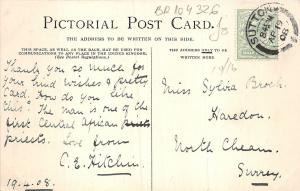 BR 104326
PICTORIAL POST CARD.
THE ADDRESS TO BE WRITTEN ON THIS SIDE.
THIS SPACE, AS WELL AS THE BACK, MAY BE USED
FOR COMMUNICATIONS TO ANY PLACE IN THE UNITED KINGDOM.
(See Postal Regulations.)
THE ADDRESS ONLY TO BE
WRITTEN HERE
SUTTON
8 PM
AP 19
08
Thank you so much for
your kind wishes & pretty
Card. How do you like
this? The man is one of the
first Central African priests
priests. Love from
C. E. Fitchin
19.4.08.
Miss Sylvia Brock
Haredon
North Cheam
Surrey.